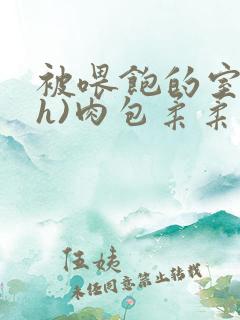 被喂饱的室
h)肉包柔柔
伍姨
未经同意禁止转载